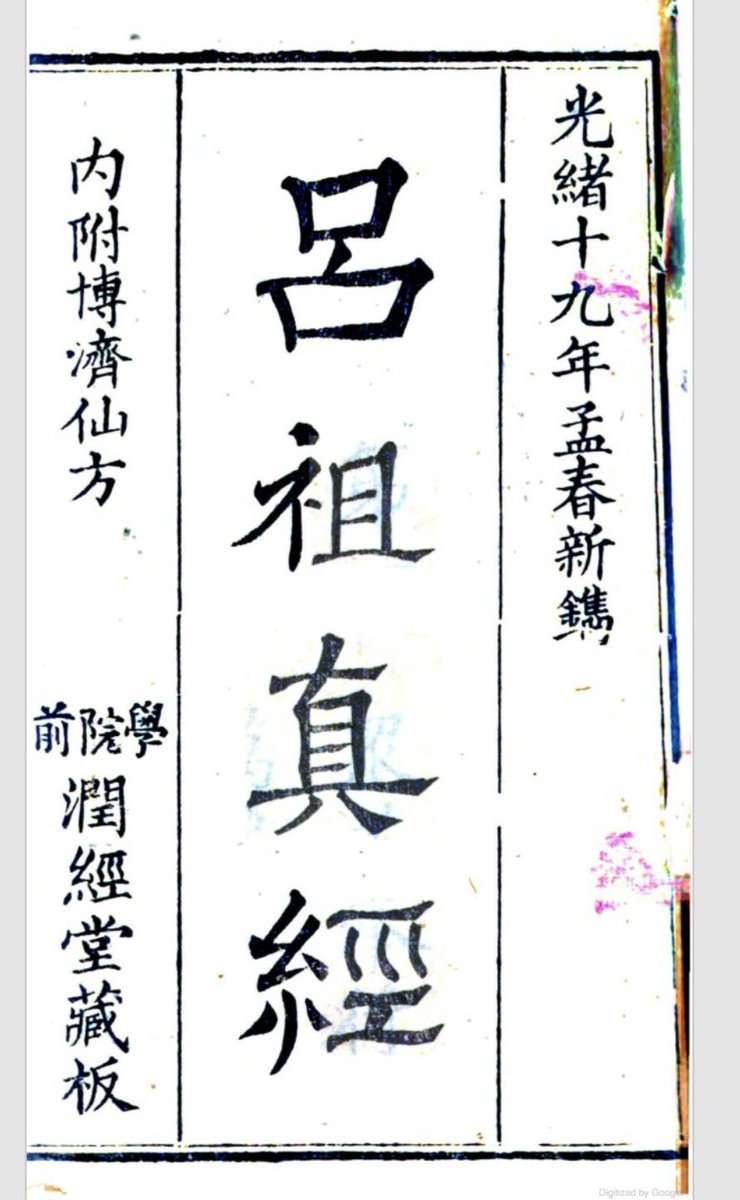 光緒十九年孟春新鐫
呂祖真經
內附博濟仙方
學院前
潤經堂藏板
Digitized by Google